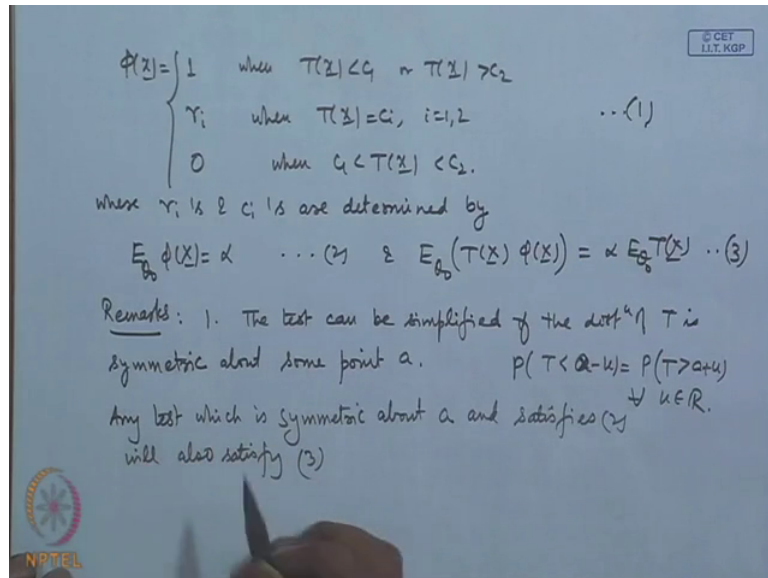 © CET
I.I.T. KGP
φ(x) = { 1 when T(x) < c₁ or T(x) > c₂
γᵢ when T(x) = cᵢ, i=1,2 ...(1)
0 when c₁ < T(x) < c₂.
where γᵢ's & cᵢ's are determined by
E_θ₀ φ(X) = α ...(2) & E_θ₀ (T(X) φ(X)) = α E_θ₀ T(X) ..(3)
Remarks: 1. The test can be simplified if the distⁿ of T is
symmetric about some point a. P(T < a-u) = P(T > a+u)
∀ u ∈ ℝ.
Any test which is symmetric about a and satisfies (2)
will also satisfy (3)
NPTEL